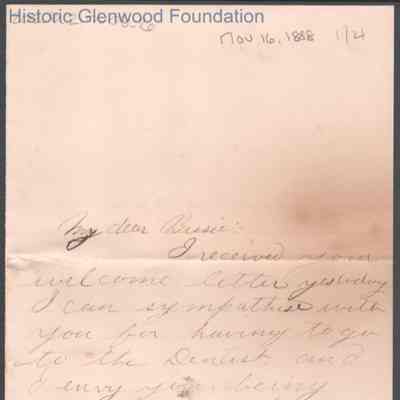 Historic Glenwood Foundation
Nov 16, 1888 1/21
My dear Bessie:
I received your
welcome letter yesterday
I can sympathise with
you for having to go
to the Dentist and
I envy you being